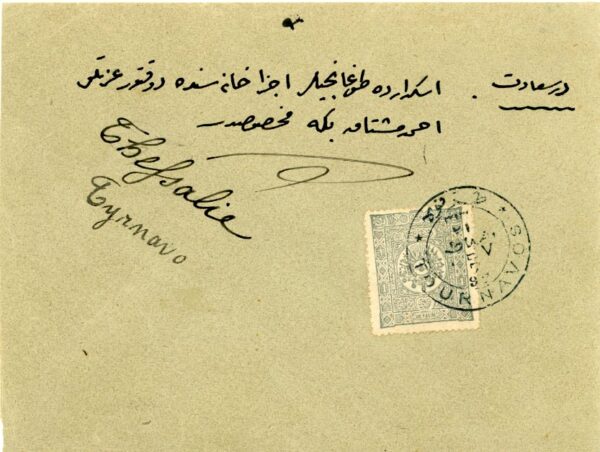 در سعادت
اسكدارده طوغانجيلر اجزاخانه سنده دوقتور عزتلو
احمد مشتاق بكه مخصوصدر
Thessalie
Tyrnavo
TOURNAVOS